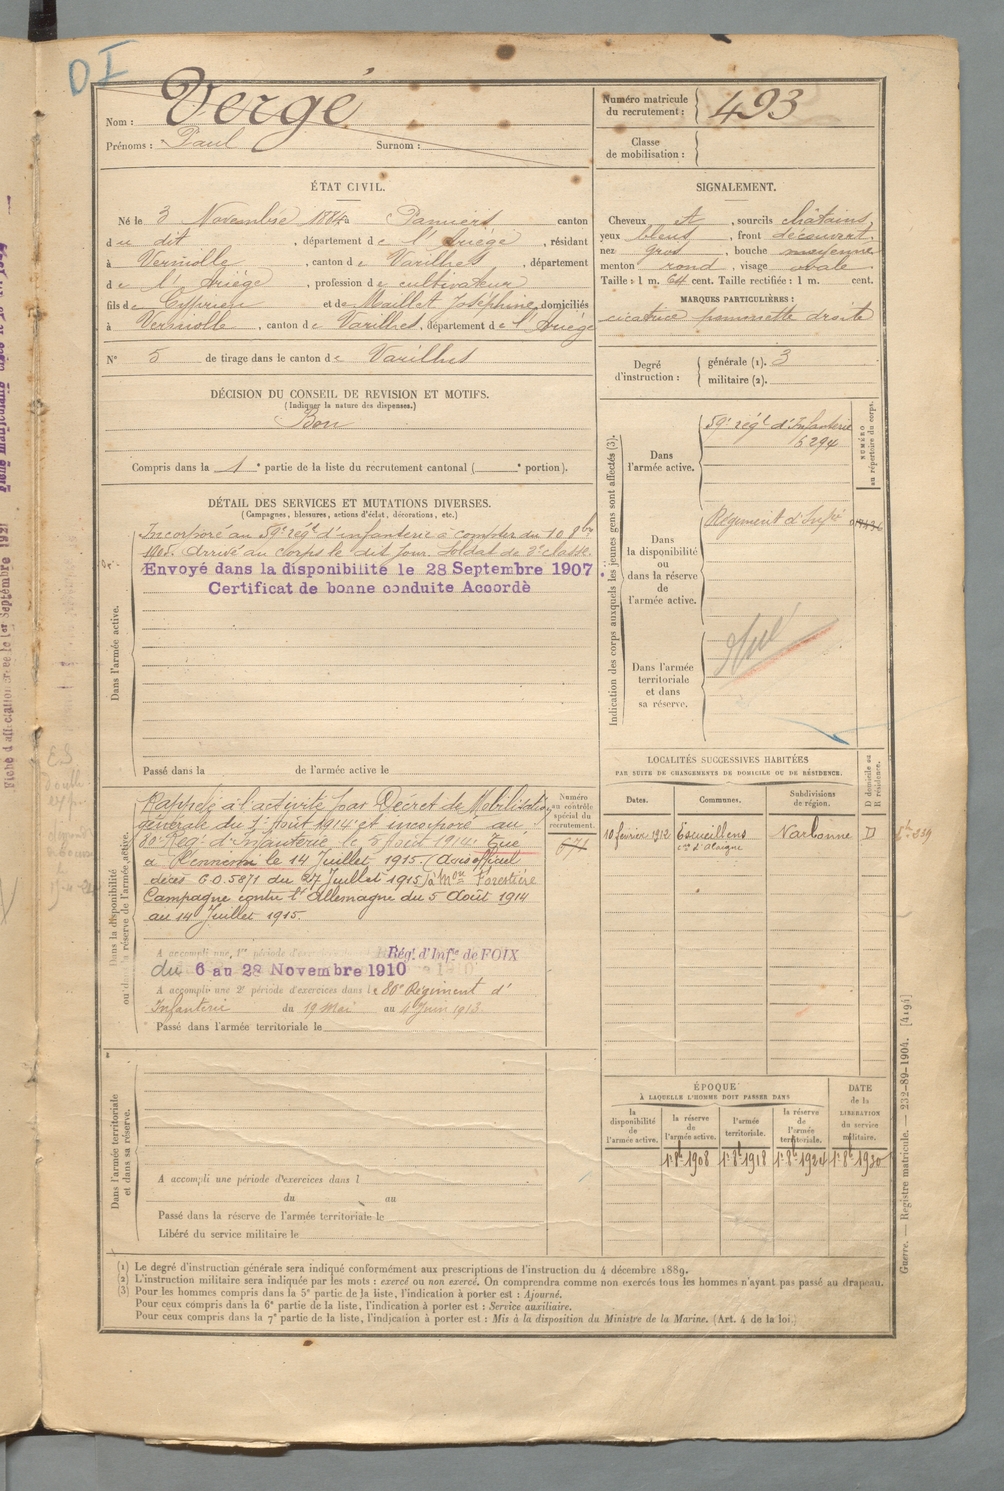 DI
Nom : Vergé
Prénoms : Paul Surnom :
Numéro matricule du recrutement : 493
Classe de mobilisation :
ÉTAT CIVIL.
Né le 3 Novembre 1884 à Pamiers canton
du dit, département de l'Ariège, résidant
à Verniolle, canton de Varilhes, département
de l'Ariège, profession de cultivateur
fils de Cyprien et de Maillet Joséphine, domiciliés
à Verniolle, canton de Varilhes, département de l'Ariège
N° 5 de tirage dans le canton de Varilhes
DÉCISION DU CONSEIL DE REVISION ET MOTIFS.
(Indiquer la nature des dispenses.)
Bon
Compris dans la 1e partie de la liste du recrutement cantonal ( e portion).
SIGNALEMENT.
Cheveux et, sourcils châtains,
yeux bleus, front découvert,
nez gros, bouche moyenne
menton rond, visage ovale
Taille : 1 m. 64 cent. Taille rectifiée : 1 m. cent.
MARQUES PARTICULIÈRES :
cicatrice pommette droite
Degré d'instruction : générale (1). 3
militaire (2).
DÉTAIL DES SERVICES ET MUTATIONS DIVERSES.
(Campagnes, blessures, actions d'éclat, décorations, etc.)
Dans l'armée active.
Incorporé au 59e régt d'infanterie à compter du 10 8bre
1905. Arrivé au corps le dit jour. Soldat de 2e classe.
Envoyé dans la disponibilité le 28 Septembre 1907
Certificat de bonne conduite Accordé
Passé dans la de l'armée active le
Indication des corps auxquels les jeunes gens sont affectés (3).
NUMÉRO au répertoire du corps.
Dans l'armée active.
59e régt d'Infanterie
6294
Dans la disponibilité ou dans la réserve de l'armée active.
Régiment d'Infie
Dans l'armée territoriale et dans sa réserve.
Tué
Dans la disponibilité ou dans la réserve de l'armée active.
Numéro au contrôle spécial du recrutement.
671
Rappelé à l'activité par Décret de Mobilisation
générale du 1er Août 1914 et incorporé au
80e Rég. d'Infanterie le 5 Août 1914. Tué
à l'ennemi le 14 Juillet 1915. (Avis officiel
décès G.O. 5871 du 27 Juillet 1915) à Mon Forestière
Campagne contre l'Allemagne du 5 Août 1914
au 14 Juillet 1915.
A accompli une 1re période d'exercices Régt. d'Infie de FOIX
du 6 au 28 Novembre 1910
A accompli une 2e période d'exercices dans le 80e Régiment d'
Infanterie du 19 Mai au 4 Juin 1913.
Passé dans l'armée territoriale le
LOCALITÉS SUCCESSIVES HABITÉES
PAR SUITE DE CHANGEMENTS DE DOMICILE OU DE RÉSIDENCE.
Dates. Communes. Subdivisions de région. D domicile ou R résidence.
10 février 1912 Escueillens Narbonne D
con d'Alaigne
Dans l'armée territoriale et dans sa réserve.
A accompli une période d'exercices dans l
du au
Passé dans la réserve de l'armée territoriale le
Libéré du service militaire le
ÉPOQUE
À LAQUELLE L'HOMME DOIT PASSER DANS
la disponibilité de l'armée active. la réserve de l'armée active. l'armée territoriale. la réserve de l'armée territoriale. DATE de la LIBÉRATION du service militaire.
1er 8bre 1908 1er 8bre 1918 1er 8bre 1924 1er 8bre 1930
(1) Le degré d'instruction générale sera indiqué conformément aux prescriptions de l'instruction du 4 décembre 1889.
(2) L'instruction militaire sera indiquée par les mots : exercé ou non exercé. On comprendra comme non exercés tous les hommes n'ayant pas passé au drapeau.
(3) Pour les hommes compris dans la 5e partie de la liste, l'indication à porter est : Ajourné.
Pour ceux compris dans la 6e partie de la liste, l'indication à porter est : Service auxiliaire.
Pour ceux compris dans la 7e partie de la liste, l'indication à porter est : Mis à la disposition du Ministre de la Marine. (Art. 4 de la loi.)
Guerre. — Registre matricule. — 232-89-1904. [4191]